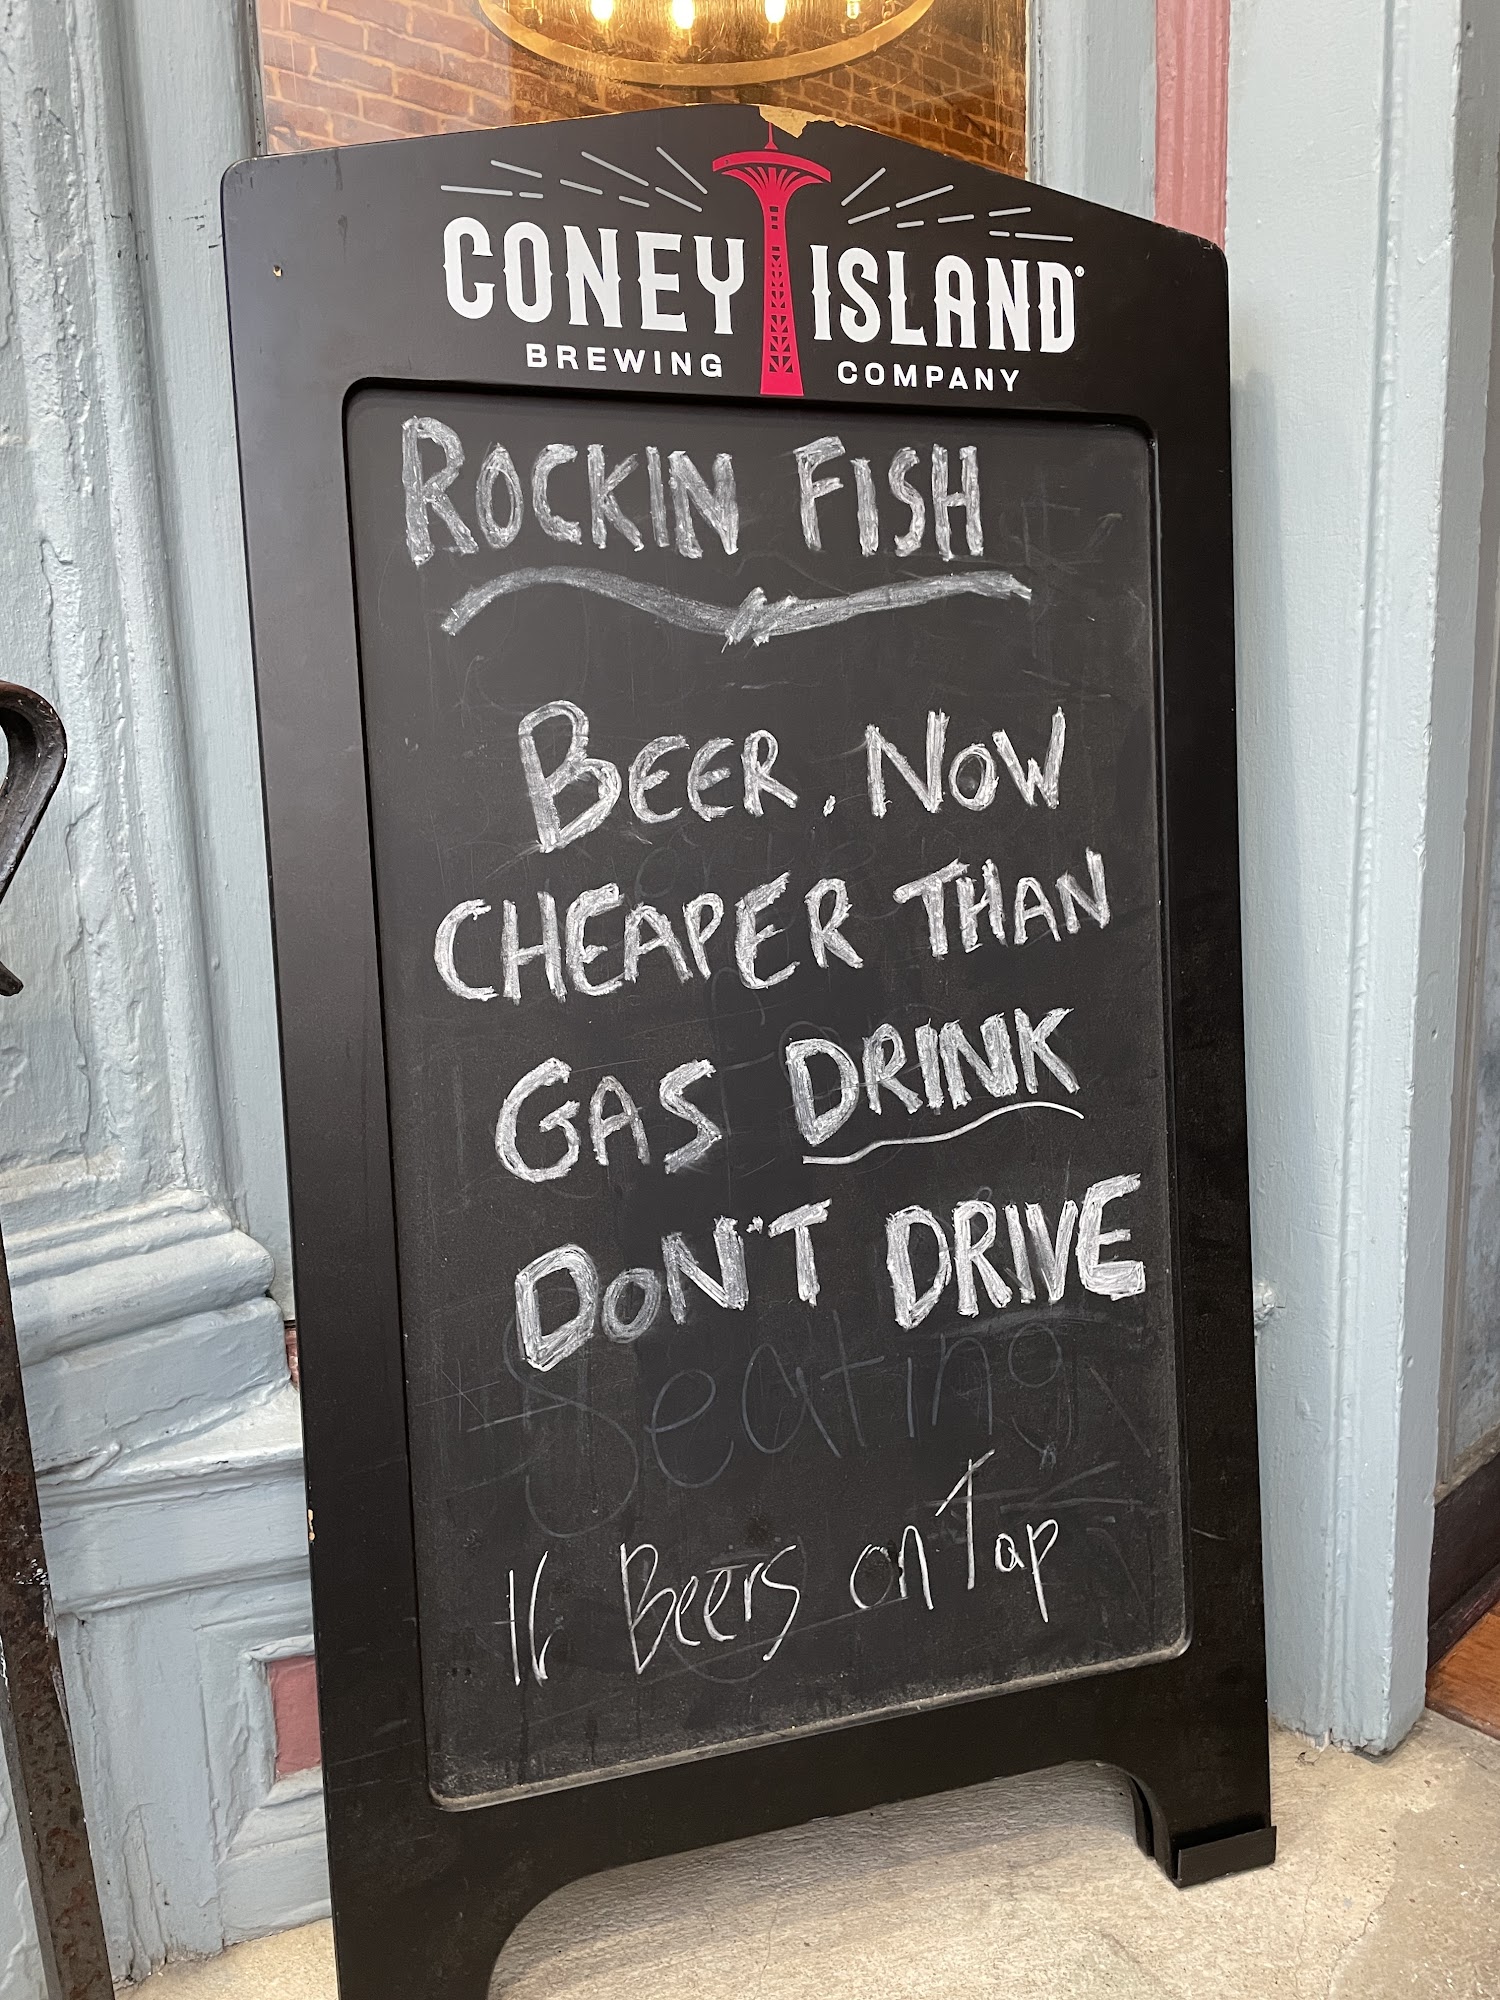 CONEY ISLAND®
BREWING COMPANY
ROCKIN FISH
BEER, NOW
CHEAPER THAN
GAS DRINK
DON'T DRIVE
Seating
16 Beers on Tap